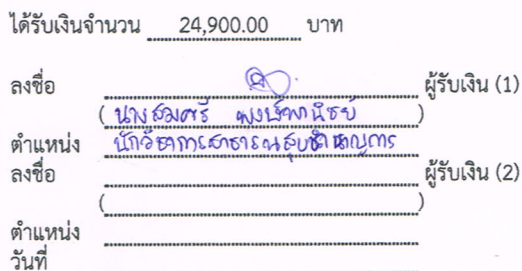 ได้รับเงินจำนวน 24,900.00 บาท
ลงชื่อ ผู้รับเงิน (1)
( นางสมศรี พงษ์พานิชย์ )
ตำแหน่ง นักวิชาการสาธารณสุขชำนาญการ
ลงชื่อ ผู้รับเงิน (2)
( )
ตำแหน่ง
วันที่